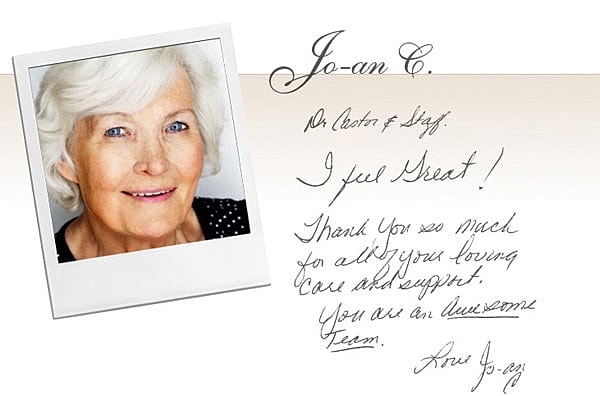 Jo-an C.
Dr Castor & Staff.
I feel Great!
Thank you so much
for all of your loving
care and support.
You are an Awesome
Team.
Love Jo-an